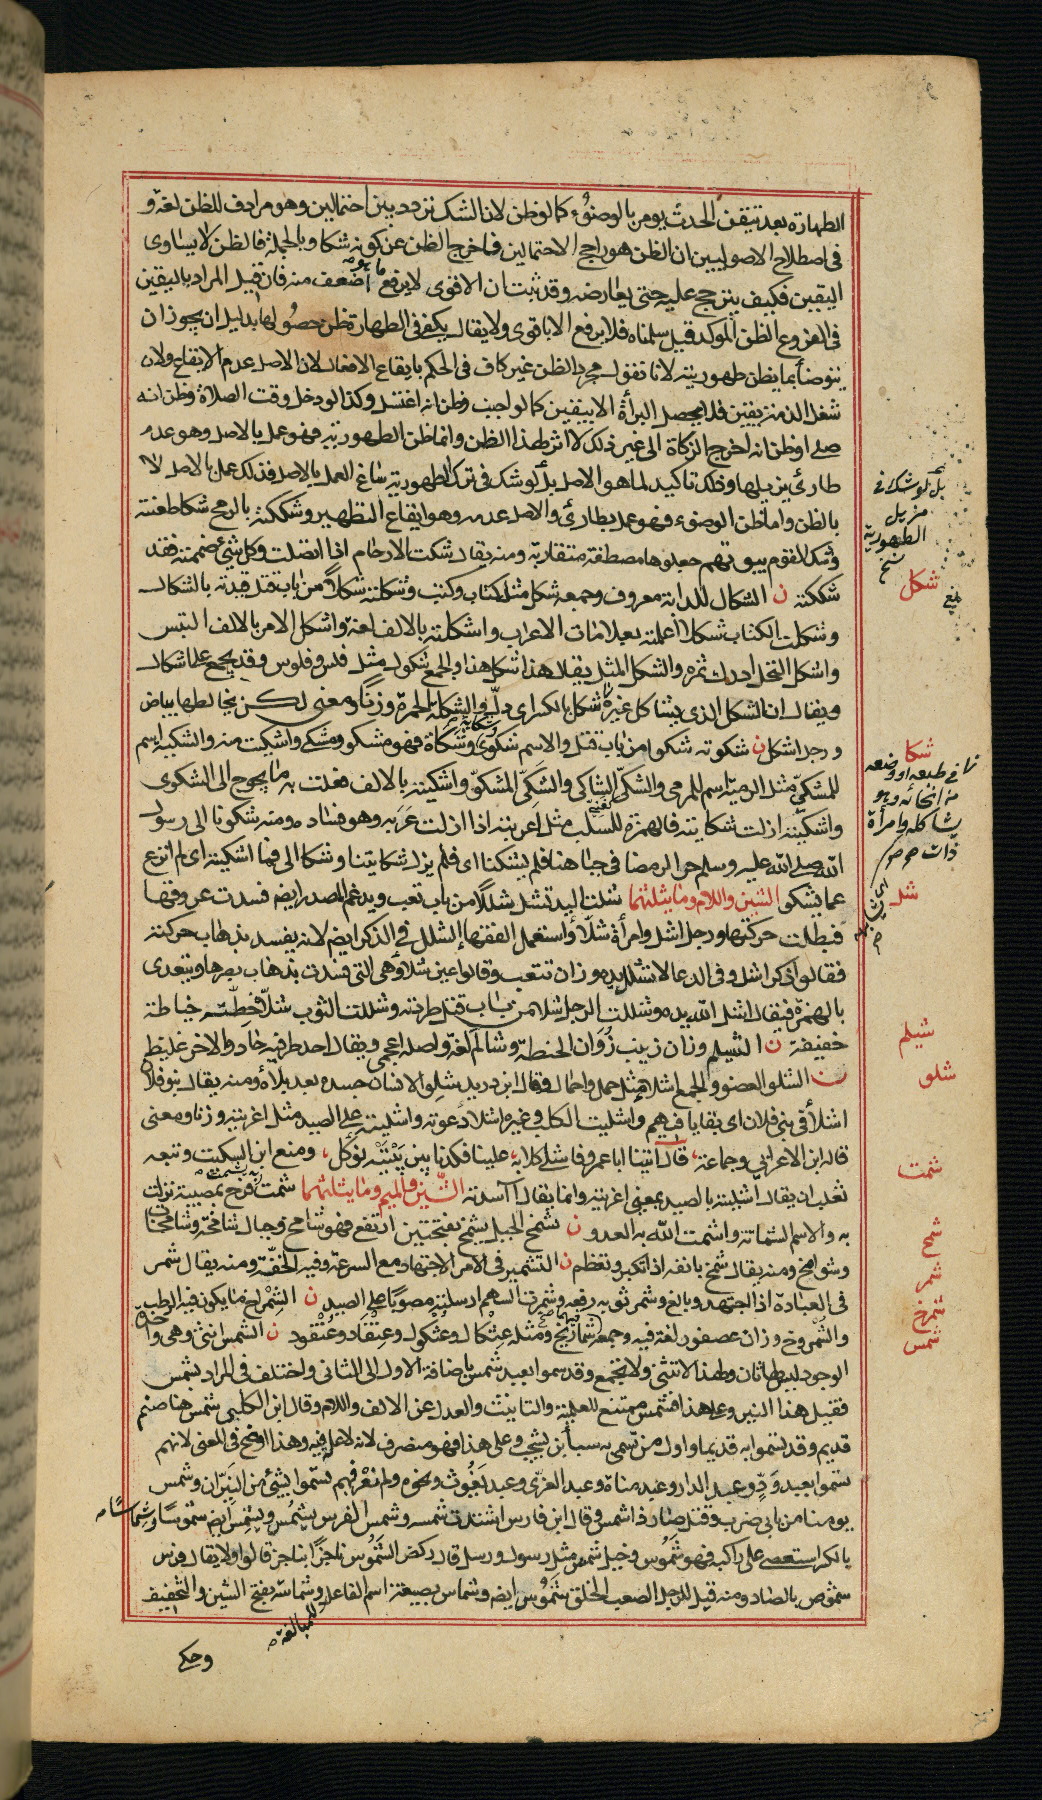 الطهارة بعد تيقن الحدث يومر بالوضوء كما لو ظن لان الشك تردد بين احتمالين وهو مرادف للظن لغة و
فى اصطلاح الاصوليين ان الظن هو راجح الاحتمالين فاخرج الظن عن كونه شكا وبالجملة فالظن لا يساوى
اليقين فكيف يترجح عليه حتى يعارضه وقد ثبت ان الاقوى لا يرفع بما هو اضعف منه فان قيل المراد باليقين
فى الفروع الظن الموكد قيل سلمناه فلا يرفع الا باقوى ولا يقال يكفى فى الطهارة ظن حصولها بدليل ان يجوز ان
يتوضأ بما يظن طهوريته لانا نقول مجرد الظن غير كاف فى الحكم بايقاع الافعال لان الاصل عدم الايقاع ولان
شغل الذمة يقين فلا يحصل البرأة الا بيقين كما لو اجنب وظن انه اغتسل وكذا لو دخل وقت الصلاة وظن انه
صلى او ظن انه اخرج الزكاة الى غير ذلك لا اثر لهذا الظن وانما ظن الطهورية فهو عمل بالاصل وهو عدم
طارئ يزيلها وذلك تاكيد لما هو الاصل بل لو شك فى ترك الطهورية ساغ العمل بالاصل فذلك عمل بالاصل لا
بالظن واما ظن الوضوء فهو عمل بطارئ والاصل عدمه وهو ايقاع التطهير وشككته بالرمح شكا طعنته
وشك القوم بيوتهم جعلوها مصطفة متقاربة ومنه يقال شكت الارحام اذا اتصلت وكل شئ ضممته فقد
شككته ن الشكال للدابة معروف وجمعه شكل مثل كتاب وكتب وشكلته شكلا من باب قتل قيدته بالشكال
وشكلت الكتاب شكلا اعلمته بعلامات الاعراب واشكلته بالالف لغة واشكل الامر بالالف التبس
واشكل النخل ادرك ثمره والشكل المثل يقال هذا شكل هذا والجمع شكول مثل فلس وفلوس وقد يجمع على اشكال
ويقال ان الشكل الذى يشاكل غيره شكل بالكسر اى دل والشكلة كالحمرة وزنا ومعنى لكن يخالطها بياض
ورجل اشكل ن شكوته شكوا من باب قتل والاسم شكوى وشكاة فهو مشكو ومشكى واشتكيت منه والشكية اسم
للمشكى مثل الرمية اسم للمرمى والشكى الشاكى والشكى المشكو واشكيته بالالف فعلت به ما يحوج الى الشكوى
واشكيته ازلت شكايته فالهمزة للسلب مثل اعربته اذا ازلت عربه وهو فساده ومنه شكونا الى رسول
الله صلى الله عليه وسلم حر الرمضا فى جباهنا فلم يشكنا اى فلم يزل شكايتنا وشكا الى فما اشكيته اى لم انزع
عما يشكو الشين واللام وما يثلثهما شلت اليد تشل شللا من باب تعب ويدغم المصدر ايضا فسدت عروقها
فبطلت حركتها ورجل اشل وامرأة شلاء واستعمل الفقها الشلل فى الذكر ايضا لانه يفسد بذهاب حركته
فقالوا ذكر اشل وفى الدعا لا تشلل يده وزان تتعب وقالوا عين شلاء وهى التى فسدت بذهاب بصرها ويتعدى
بالهمزة فيقال اشل الله يده وشللت الرجل شلا من باب قتل طردته وشللت الثوب شلا خطته خياطة
خفيفة ن الشيلم وزان زينب زوان الحنطة وشالم لغة واصله اعجمى ويقال احد طرفيه حاد والاخر غليظ
ن الشلو العضو والجمع اشلاء مثل حمل واحمال وقال ابن دريد شلو الانسان جسده بعد بلائه ومنه يقال بنو فلان
اشلاء فى بنى فلان اى بقايا فيهم واشليت الكلب وغيره اشلاء دعوته واشليته على الصيد مثل اغريته وزنا ومعنى
قاله ابن الاعرابى وجماعة، قال اتينا ابا عمرو فاشلى كلابه، علينا فكدنا بين بيتيه نؤكل، ومنع ابن السكيت وتبعه
ثعلب ان يقال اشليته بالصيد بمعنى اغريته وانما يقال آسدته الشين والميم وما يثلثهما شمت به يشمت فرح بمصيبة نزلت
به والاسم الشماتة واشمت الله به العدو ن شمخ الجبل يشمخ بفتحتين ارتفع فهو شامخ وجبال شامخة وشامخات
وشوامخ ومنه يقال شمخ بانفه اذا تكبر وتعظم ن التشمير فى الامر الاجتهاد مع السرعة وفيه الخفة ومنه يقال شمر
فى العبادة اذا اجتهد وبالغ وشمر ثوبه رفعه وشمرت السهم ارسلته مصوبا على الصيد ن الشمراخ ما يكون فيه الرطب
والشمروخ وزان عصفور لغة فيه وجمعهما شماريخ ومثله عثكال وعثكول وعنقاد وعنقود ن الشمس انثى وهى واحدة
الوجود ليس لها ثان ولهذا لا تثنى ولا تجمع وقد سموا بعبد شمس باضافة الاول الى الثانى واختلف فى المراد بشمس
فقيل هذا النير وعلى هذا فشمس ممتنع للعلمية والتانيث والعدل عن الالف واللام وقال ابن الكلبى شمس هنا صنم
قديم وقد تسموا به قديما واول من تسمى به سبأ بن يشجب وعلى هذا فهو منصرف لانه لا علة فيه وهذا اوضح فى المعنى لانهم
سموا بعبد ود وعبد الدار وعبد مناة وعبد العزى وعبد يغوث ونحوه ولم نعرفهم تسموا بشئ من النيران وشمس
يومنا من بابى ضرب وقتل صار ذا شمس وقال ابن فارس اشتدت شمسه وشمس الفرس يشمس ويشمس ايضا شموسا وشماسا
بالكسر استعصى على راكبه فهو شموس وخيل شمس مثل رسول ورسل قال ركض الشموس ناجزا بناجز قالوا ولا يقال فرس
شموص بالصاد ومنه قيل للرجل الصعب الخلق شموس ايضا وشماس بصيغة اسم الفاعل وشماسة بفتح الشين والتخفيف
للمبالغة
وحكى
بل لو شك فى
مزيل
الطهورية
شكل
شكا
فى طبعه او وصفه
من انحائه وهو
يشاكله وامرأة
ذات
شل
شيلم
شلو
شمت
شمخ
شمر
شمرخ
شمس